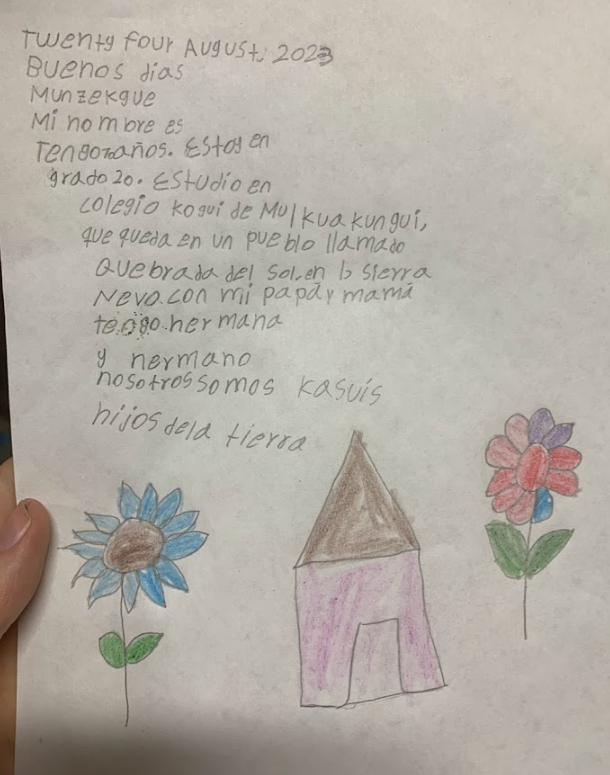 Twenty four August, 2023
Buenos dias
Munzekgue
Mi nombre es
Tengo años. Estoy en
grado 2o. Estudio en
colegio kogui de Mulkuakungui,
que queda en un pueblo llamado
Quebrada del Sol, en la sierra
Neva. con mi papá y mamá
tengo. hermana
y hermano
nosotros somos kasuis
hijos de la tierra